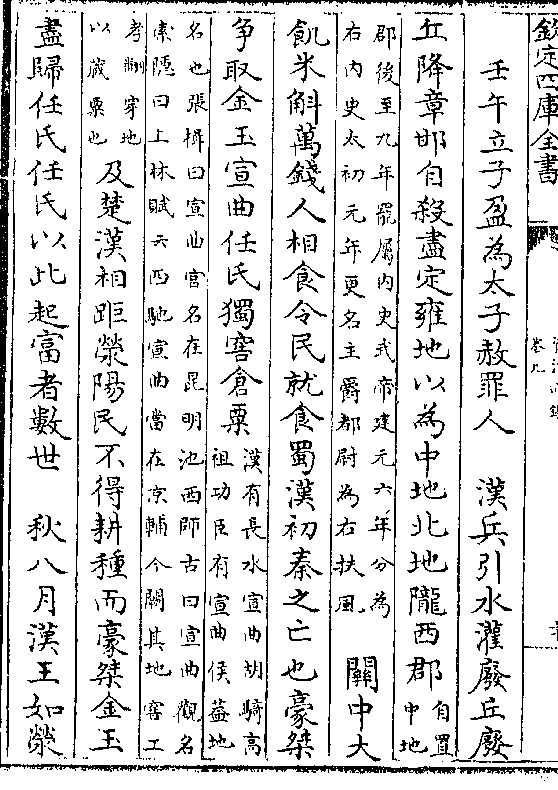 欽定四庫全書
卷九
壬午立子盈為太子赦罪人　漢兵引水灌廢丘廢
丘降章邯自殺盡定雍地以為中地北地隴西郡
自置
中地
郡後至九年罷屬内史武帝建元六年分為
右内史太初元年更名主爵都尉為右扶風
關中大
飢米斛萬錢人相食令民就食蜀漢初秦之亡也豪桀
争取金玉宣曲任氏獨窖倉粟
漢有長水宣曲胡騎高
祖功臣有宣曲侯葢地
名也張揖曰宣曲宫名在昆明池西師古曰宣曲觀名
索隱曰上林賦云西馳宣曲當在京輔今闕其地窖工
考翻穿地
以蔵粟也
及楚漢相距滎陽民不得耕種而豪桀金玉
盡歸任氏任氏以此起富者數世　秋八月漢王如滎